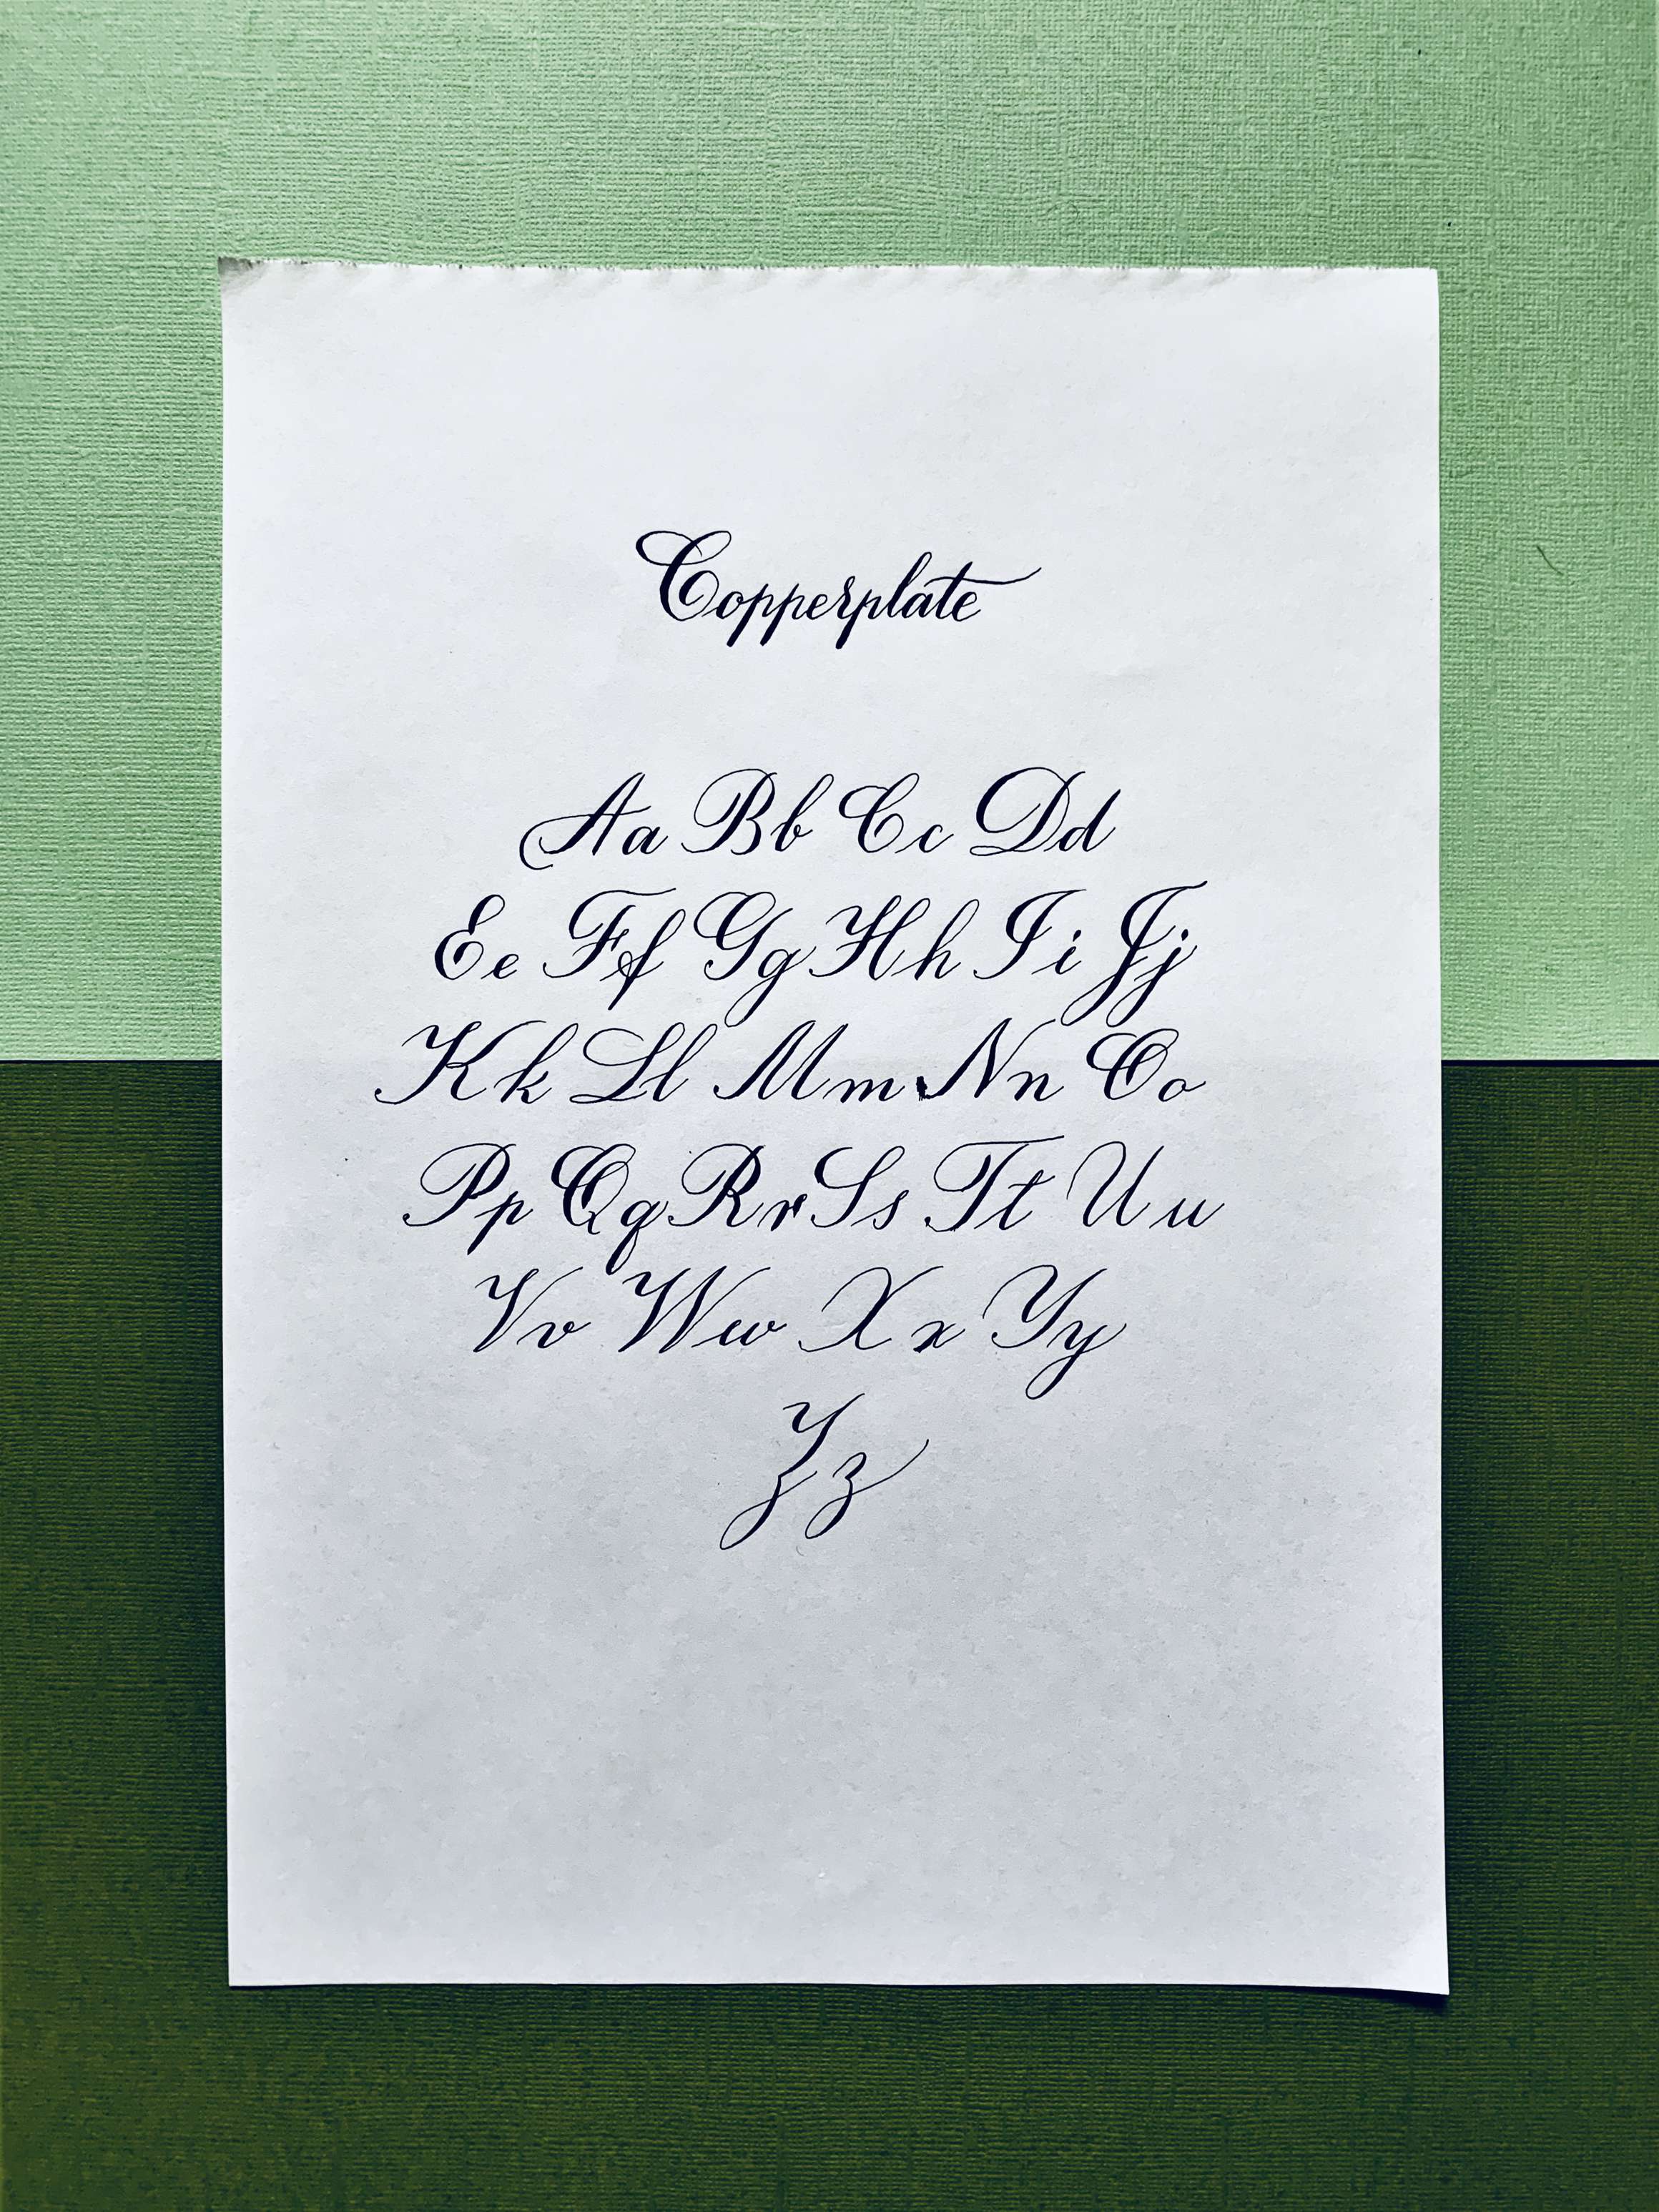 Copperplate
Aa Bb Cc Dd
Ee Ff Gg Hh Ii Jj
Kk Ll Mm Nn Oo
Pp Qq Rr Ss Tt Uu
Vv Ww Xx Yy
Zz